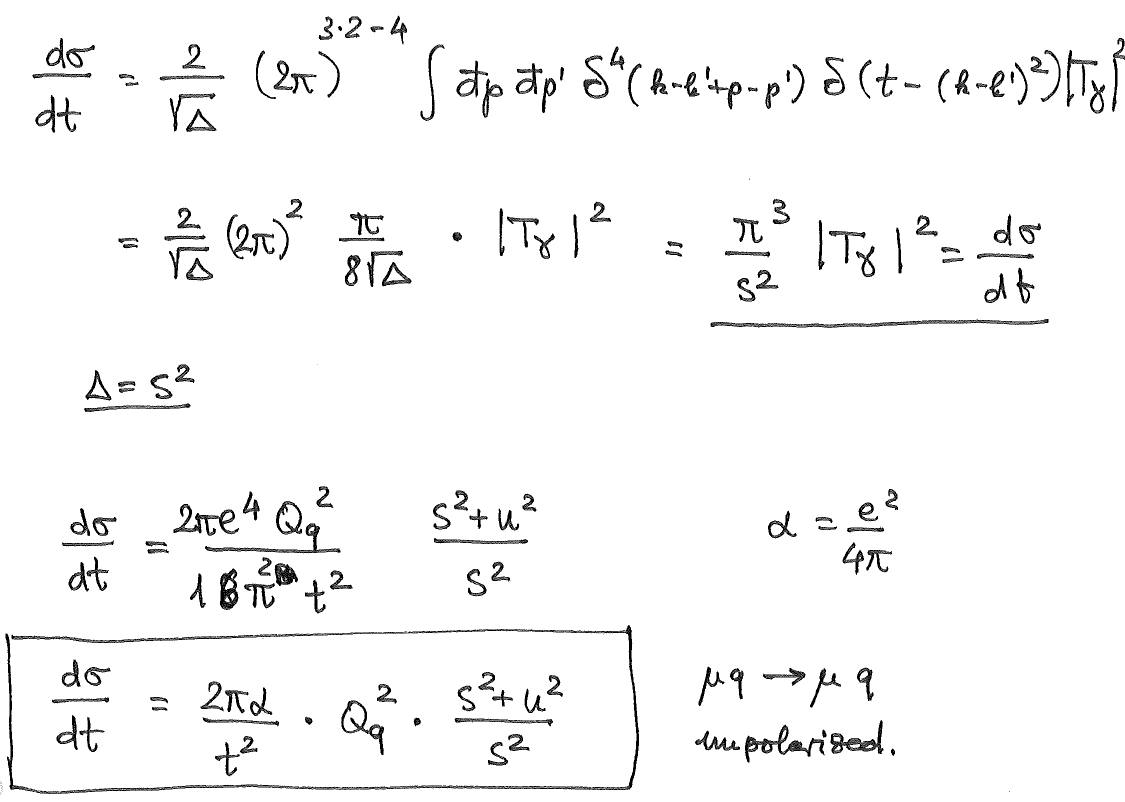 dσ/dt = 2/√Δ (2π)^{3·2-4} ∫ đp đp' δ⁴(k-k'+p-p') δ(t-(k-k')²)|T_γ|²
= 2/√Δ (2π)² π/(8√Δ) · |T_γ|² = π³/s² |T_γ|² = dσ/dt
Δ = s²
dσ/dt = 2πe⁴ Q_q²/(16π² t²) (s²+u²)/s² α = e²/4π
dσ/dt = 2πα/t² · Q_q² · (s²+u²)/s² μq → μq
unpolarised.